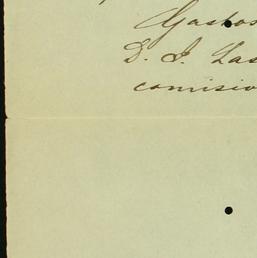 Gastos
D. J. Las
comisio